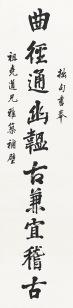 曲徑通幽韞古兼宜稽古
拙句書奉
祖堯道兄雅集補壁